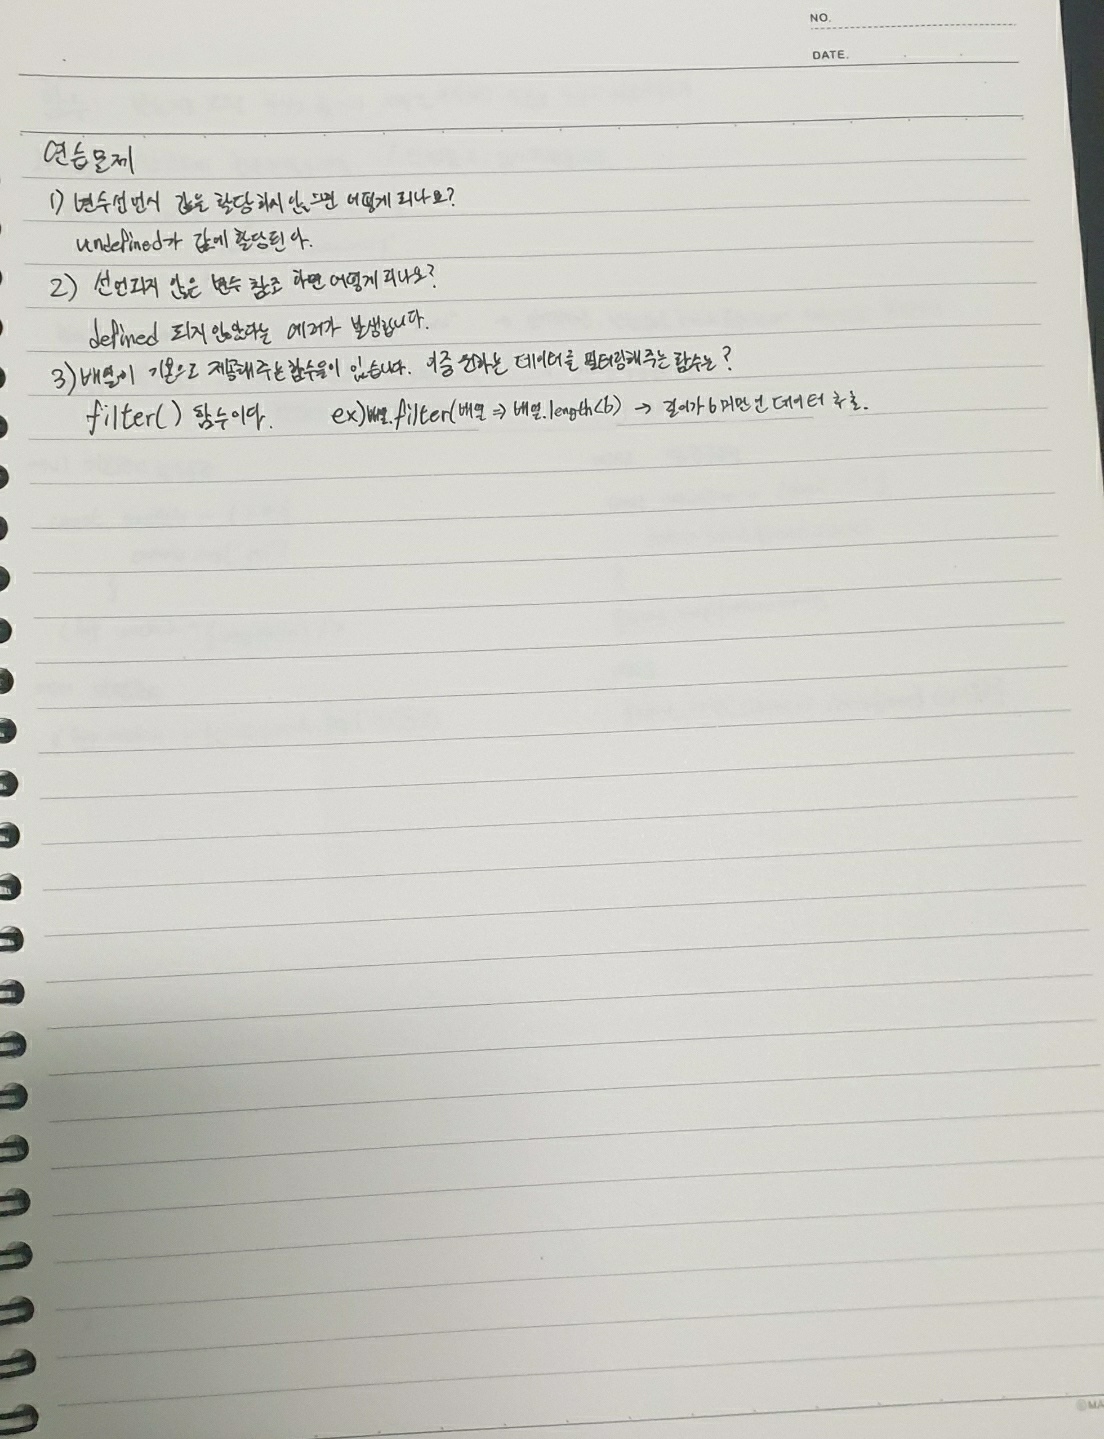 NO.
DATE.
연습문제
1) 변수선언시 값을 할당하지 않으면 어떻게 되나요?
undefined가 값에 할당된다.
2) 선언되지 않은 변수 참조 하면 어떻게 되나요?
defined 되지 않았다는 에러가 발생합니다.
3) 배열이 기본으로 제공해주는 함수들이 있습니다. 이중 원하는 데이터를 필터링해주는 함수는?
filter() 함수이다. ex) 배열.filter(배열 => 배열.length<6) → 길이가 6 미만인 데이터 추출.